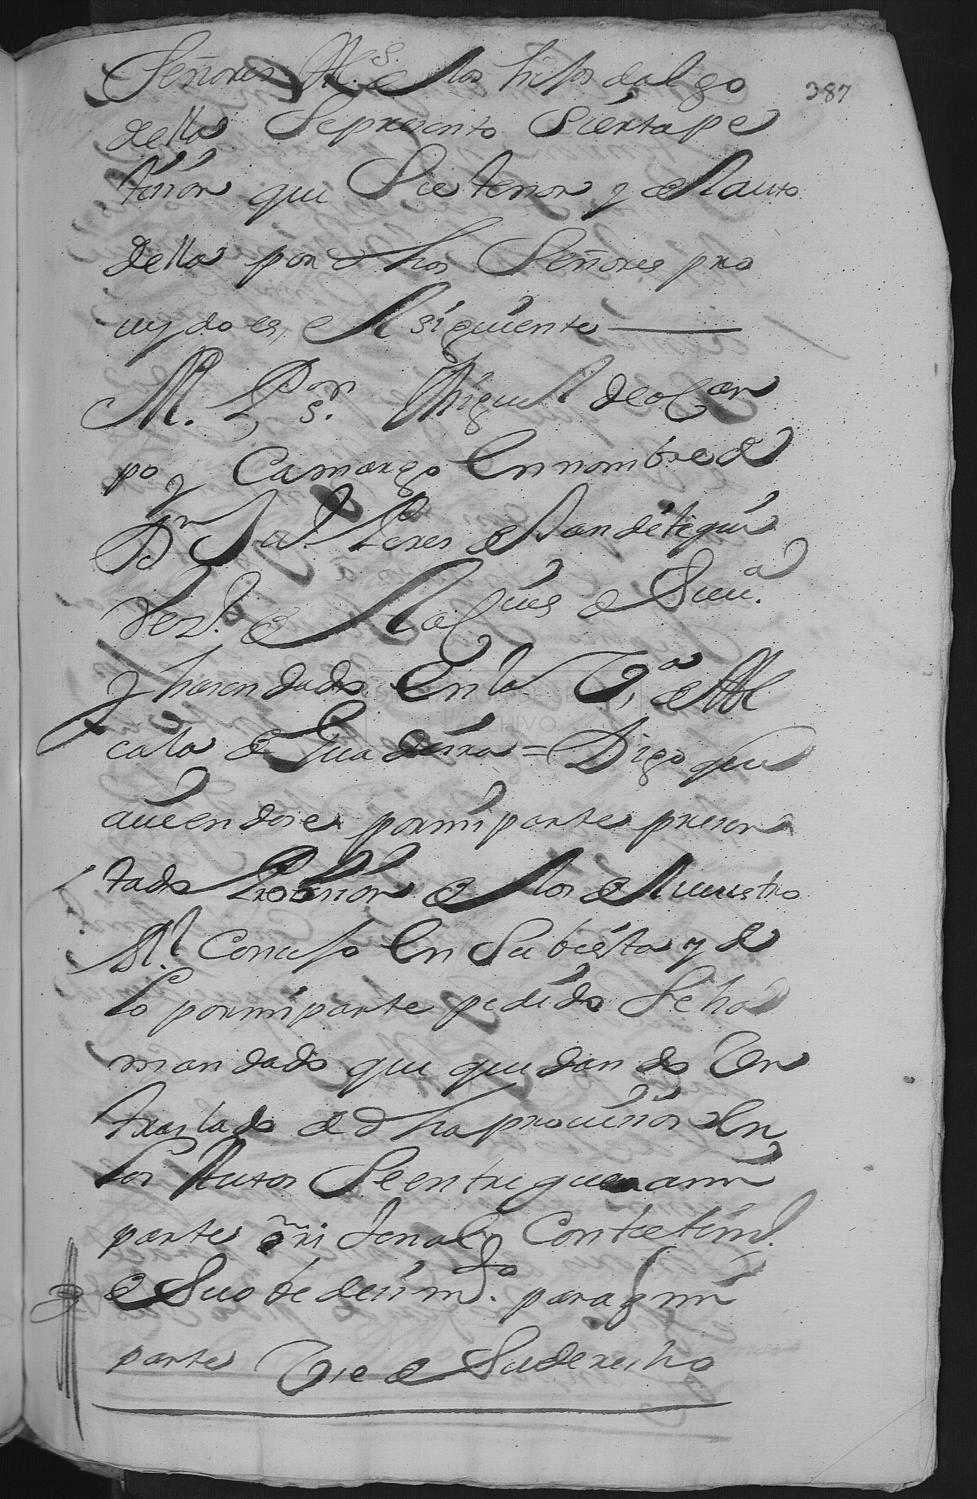 387
Señores Al.s de los hijos dalgo
della Sepresento Ciertape
tision que Sutenor y delauto
della por dhos Señores pro
uydo es, el siguiente
M. P. s.r Miguel delCam
po y Camargo Ennombrede
Dn Ju.o Peres de Landetegui
Vez.o de Marques de Seui.a
y hasendado Enla V.a de Al
cala de Guadaira = Digo que
auiendose pormiparte presen
tado Prouision de los de Vuestro
R.l Consejo En Subista y de
lo pormiparte pedido Seha
mandado que quedando Un
traslado de dha prouision En
los Autos Seentregue ami
parte orijinal Contestim.o
de Suobedesim.to para q mi
parte Use de Suderecho